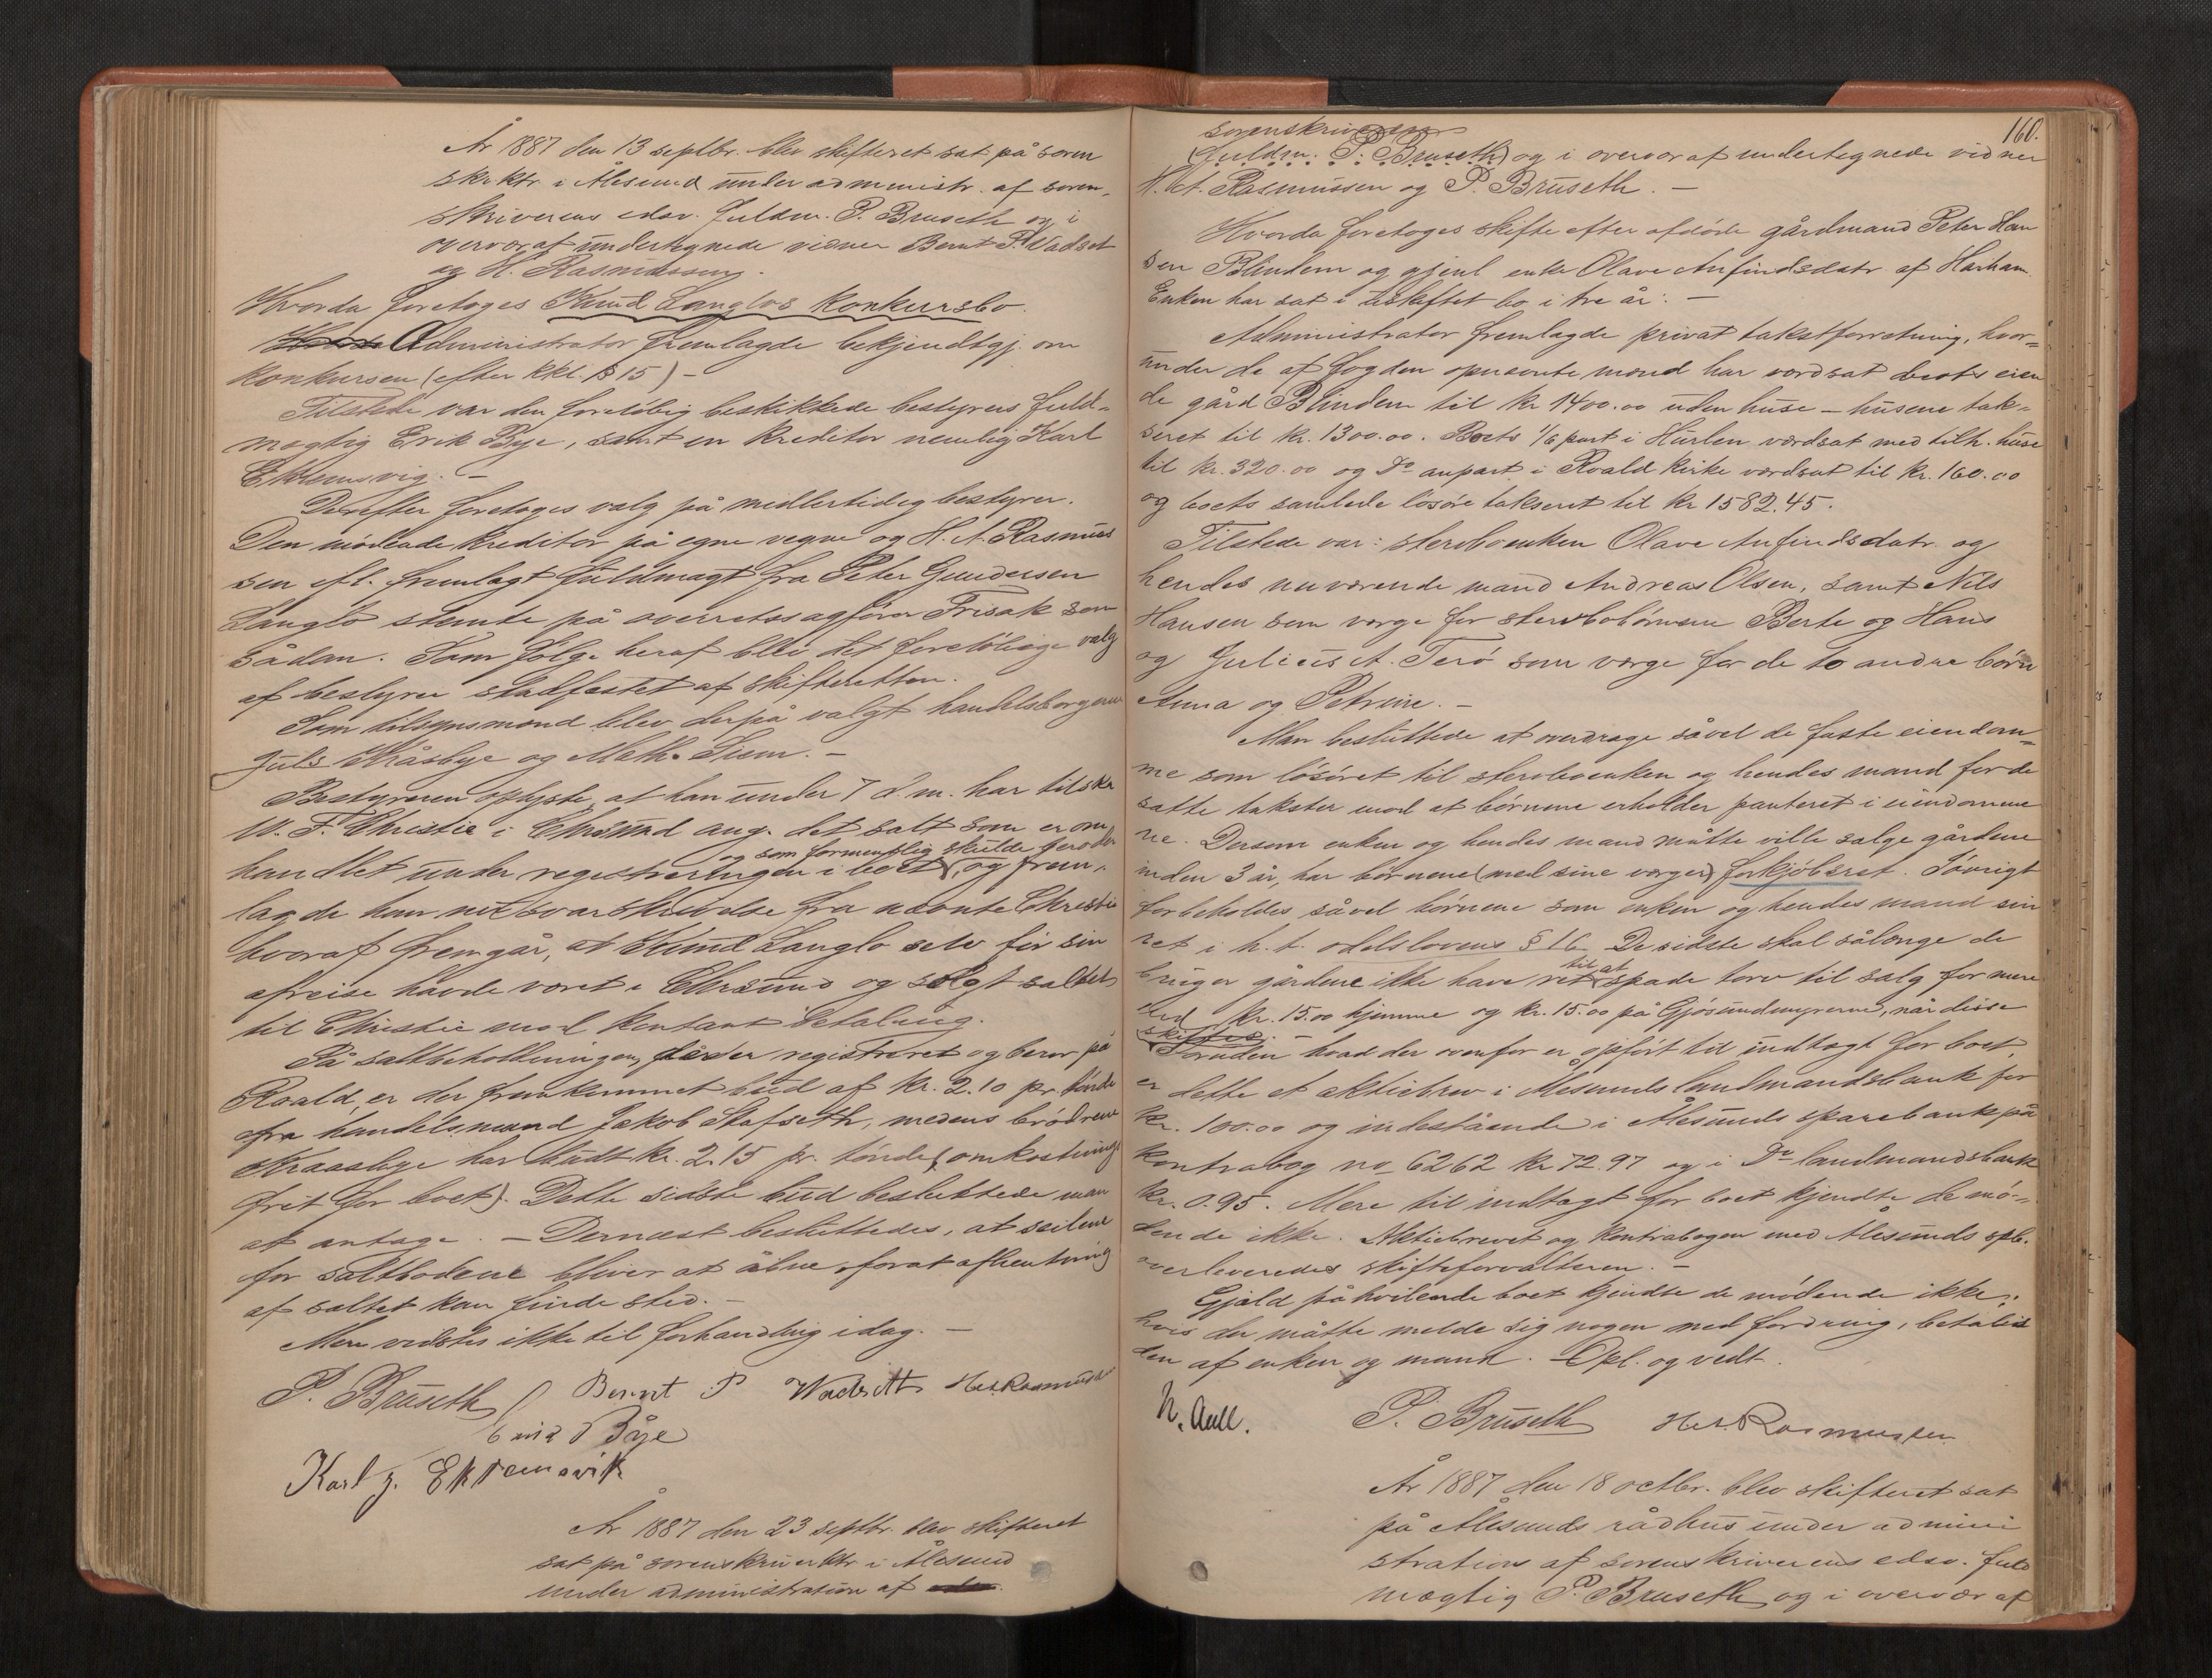 År 1887 den 13 septbr. blev skifteret sat på soren
skr.ktr. i Ålesund under administr. af soren-
skriverens edsv. fuldm. P. Bruseth og i
overvær af undertegnede vidner Bernt P. Vadset
og H. Rasmussen.
Hvorda foretoges Knud Langlos konkursbo.
Administrator fremlagde bekjendtgj. om
konkursen (efter kkl. § 15) –
Tilstede var den foreløbig beskikkede bestyrers fuld-
mægtig Erik Bye, samt en kreditor nemlig Karl
Ekremsvig. –
Derefter foretoges valg på midlertidig bestyrer.
Den mødende kreditor på egne vegne og H. A. Rasmus
sen ifl. fremlagt fuldmagt fra Peter Gundersen
Langlo stemte på overretssagfører Frisak som
sådan. Som følge heraf blev det foreløbige valg
af bestyrer stadfæstet af skifteretten.
Som tilsynsmænd blev derpå valgt handelsborgerne
Juls Kråsbye og Math. Siem. –
Bestyreren oplyste, at han under 7 d.m. har tilskr.
W. F. Christie i Chrsund ang. det salt som er om
og som formentlig skulde tilhøre
handlet under registreringen i boet, og frem-
lagde han nu svarskrivelse fra nævnte Christie
hvoraf fremgår, at Knud Langlo selv før sin
afreise havde været i Chrsund og solgt saltet
til Christie mod kontant betaling.
På saltbeholdningen, der er registreret og beror på
Roald, er der fremkommet bud af kr. 2.10 pr. tønde
fra handelsmand Jakob Stafseth, medens brødrene
Kraasbye har budt kr. 2.15 pr. tønde (omkostnings
frit for boet). Dette sidste bud besluttede man
at antage. – Dernæst besluttedes, at seilene
for saltbodene bliver at åbne, forat afhentning
af saltet kan finde sted. –
Mere vidstes ikke til forhandling idag. –
P. Bruseth Bernt P Wadseth H.A. Rasmussen
Erik Bye
Karl J. Ekremsvik
År 1887 den 23 septbr. blev skifteret
sat på sorenskriverktr. i Ålesund
under administration af
160.
sorenskriveren
(fuldm. P. Bruseth) og i overvær af undertegnede vidner
H. A. Rasmussen og P. Bruseth. –
Hvorda foretoges skifte efter afdøde gårdmand Peter Han
sen Blindem og gjenl. enke Olave Anfindsdatr. af Harham.
Enken har sat i uskiftet bo i tre år. –
Administrator fremlagde privat takstforretning, hvor-
under de af fogden opnævnte mænd har værdsat boets eien
de gård Blindem til kr 1400.00 uden huse – husene tak-
seret til kr. 1300.00. Boets 1/6 part i Hurlen værdsat med tilh. huse
til kr. 320.00 og Do anpart i Roald kirke værdsat til kr. 160.00
og boets samlede løsøre takseret til kr 1582.45.
Tilstede var: sterboenken Olave Anfindsdatr. og
hendes nuværende mand Andreas Olsen, samt Nils
Hansen som værge for sterbobørnene Berte og Hans
og Julius A. Terø som værge for de to andre børn
Anna og Petrine. –
Man besluttede at overdrage såvel de faste eiendom-
me som løsøret til sterboenken og hendes mand for de
satte takster mod at børnene erholder panteret i eiendomme
ne. Dersom enken og hendes mand måtte ville sælge gårdene
inden 3 år, har børnene (med sine værger) forkjøbsret. Iøvrigt
forbeholdes såvel børnene som enken og hendes mand sin
ret i h. t. odelslovens § 16. De sidste skal sålænge de
til at
bruger gårdene ikke have ret spade torv til salg for mere
end kr. 15.00 hjemme og kr. 15.00 på Gjøsundmyrerne, når disse
skiftes.
Foruden hvad der ovenfor er opført til indtægt for boet,
er dette et aktiebrev i Ålesunds landmandsbank for
kr. 100.00 og indestående i Ålesunds sparebank på
kontrabog no 6262 kr 72.97 og i Do landmandsbank
kr. 0.95. Mere til indtægt for boet kjendte de mø-
dende ikke. Aktiebrevet og kontrabogen med Ålesunds spb.
overleveredes skifteforvalteren. –
Gjæld påhvilende boet kjendte de mødende ikke;
hvis der måtte melde sig nogen med fordring, betales
den af enken og mand. – Opl. og vedt.
N. Aall. P. Bruseth H.A. Rasmussen
År 1887 den 18 octbr. blev skifteret sat
på Ålesunds rådhus under admini
stration af sorenskriverens edsv. fuld
mægtig P. Bruseth og i overvær af